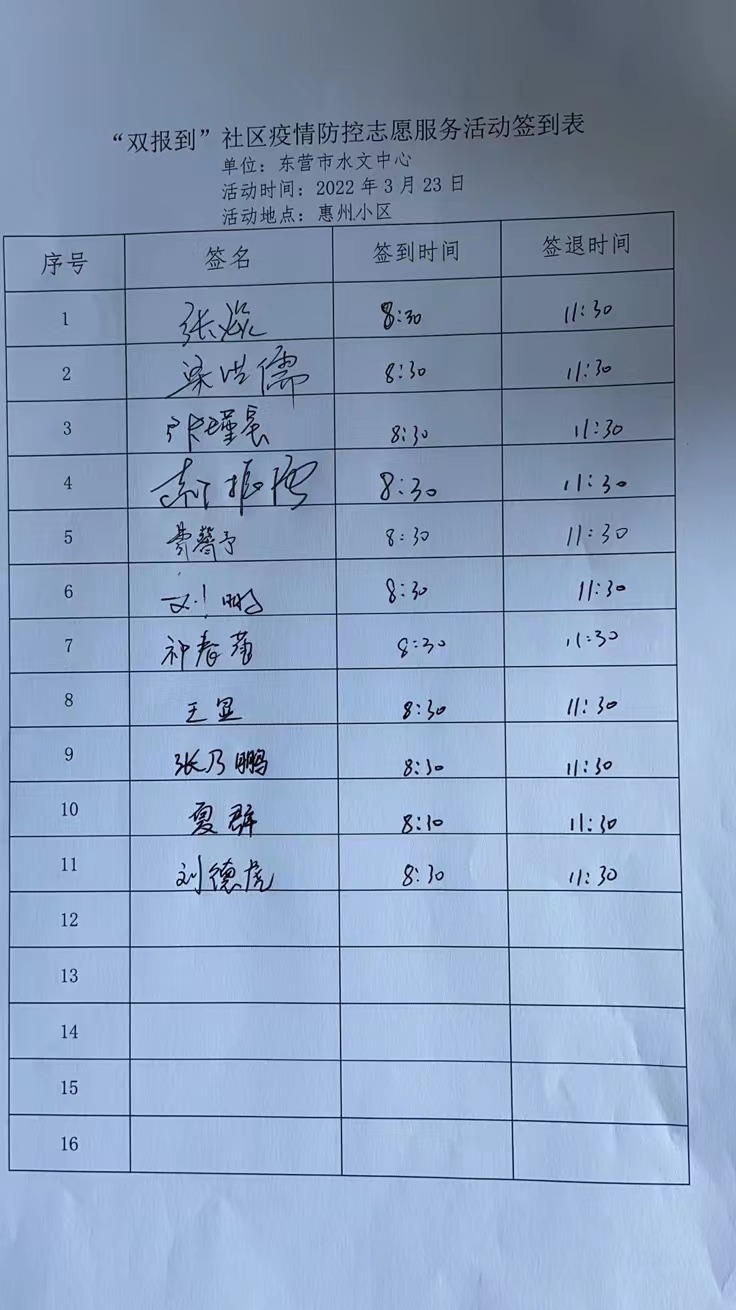 “双报到”社区疫情防控志愿服务活动签到表
单位：东营市水文中心
活动时间：2022 年 3 月 23 日
活动地点：惠州小区
序号 签名 签到时间 签退时间
1 张 8:30 11:30
2 梁洪儒 8:30 11:30
3 8:30 11:30
4 8:30 11:30
5 费馨予 8:30 11:30
6 刘鹏 8:30 11:30
7 神春 8:30 11:30
8 王显 8:30 11:30
9 张乃鹏 8:30 11:30
10 夏群 8:30 11:30
11 刘德虎 8:30 11:30
12
13
14
15
16